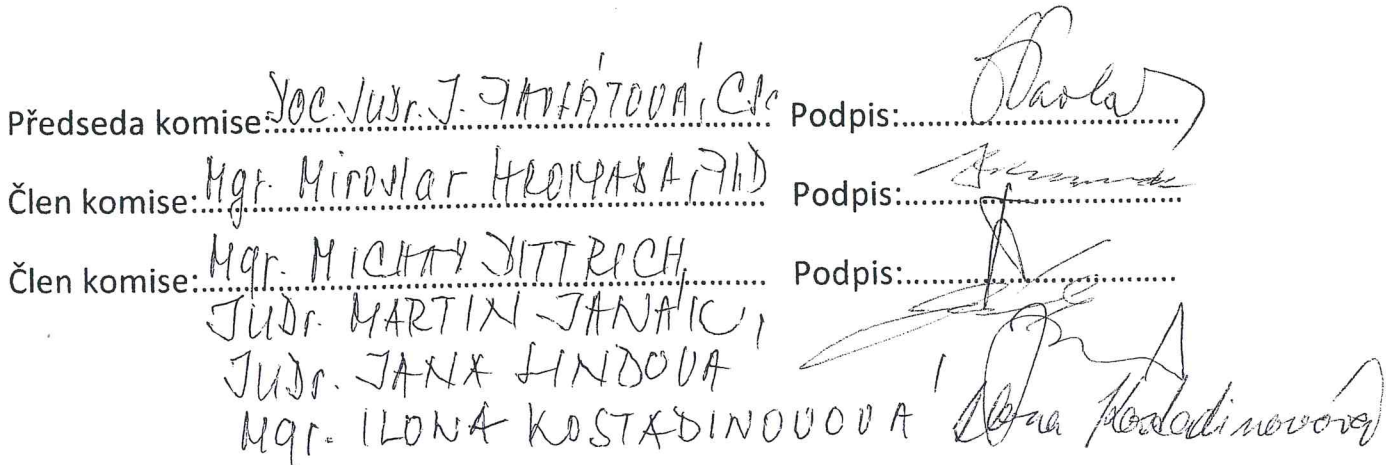 Předseda komise: Doc. JUDr. J. PAVLÁTOVÁ, CSc Podpis:
Člen komise: Mgr. Miroslav HROMADA, PhD Podpis:
Člen komise: Mgr. MICHAL DITTRICH, Podpis:
JUDr. MARTIN JANÁK,
JUDr. JANA LINDOVÁ
Mgr. ILONA KOSTADINOVOVÁ Ilona Kostadinovová